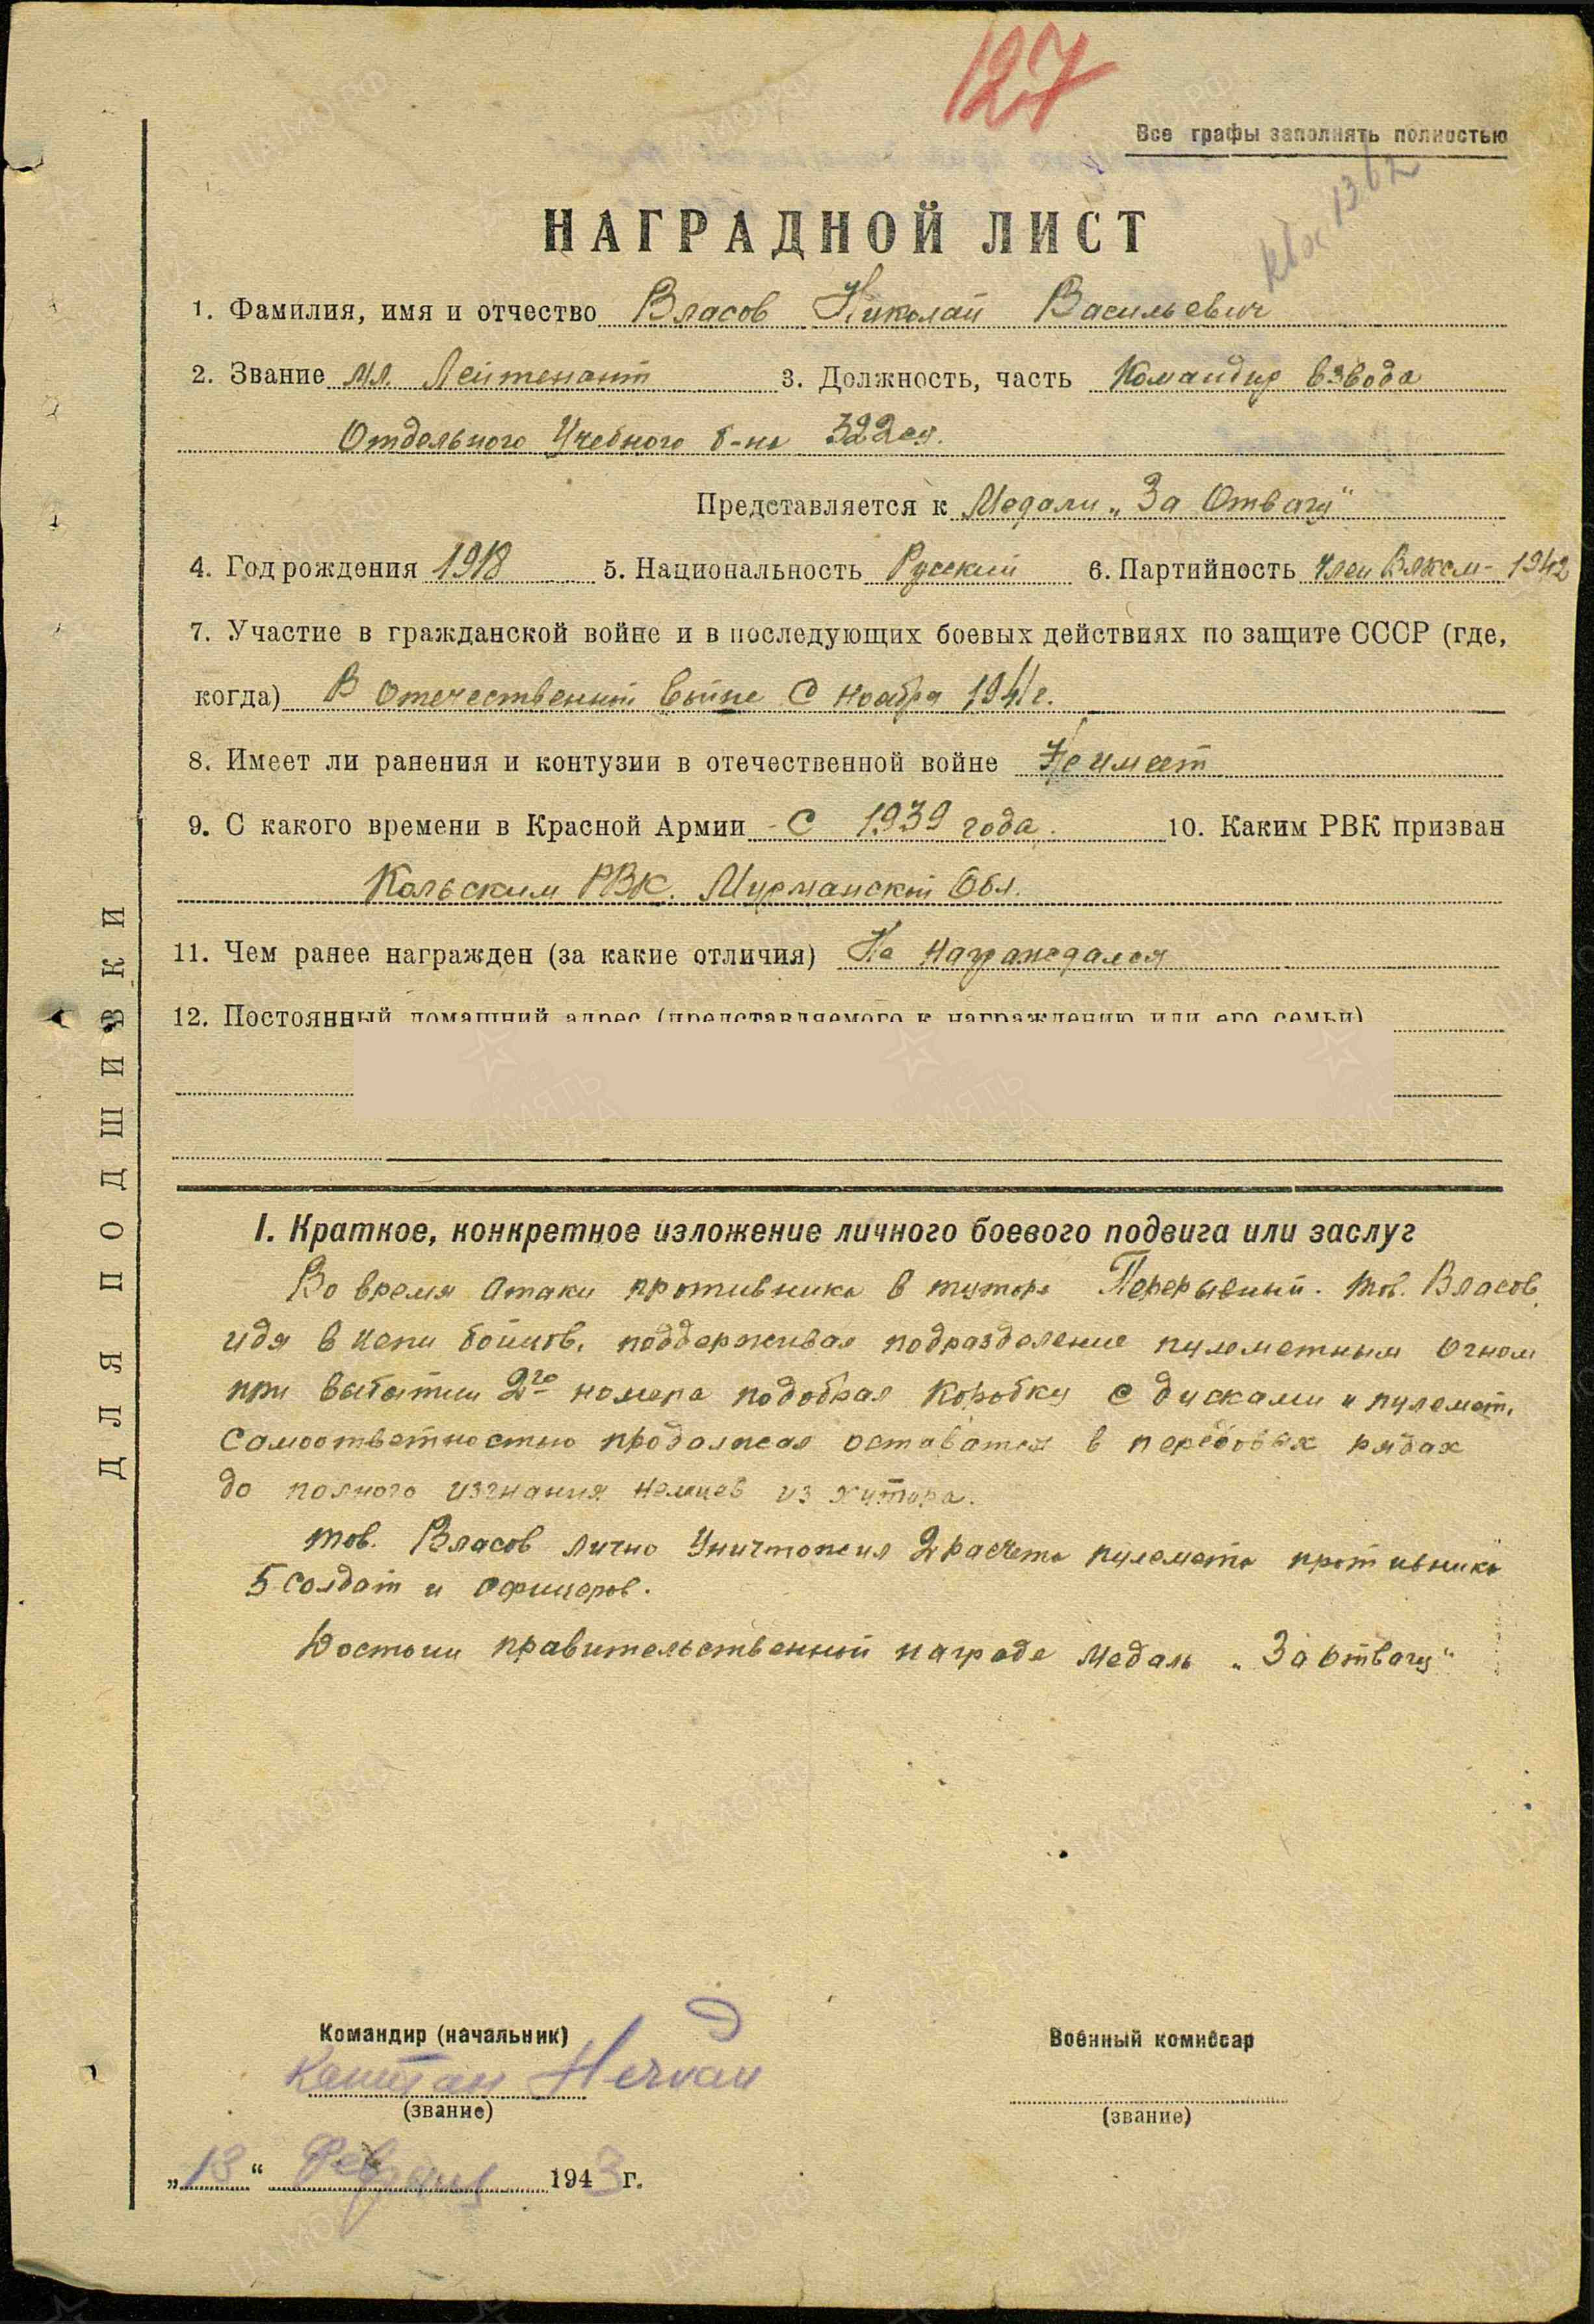 127
Все графы заполнять полностью
НАГРАДНОЙ ЛИСТ
1. Фамилия, имя и отчество Власов Николай Васильевич
2. Звание Мл. Лейтенант 3. Должность, часть Командир взвода
Отдельного Учебного б-на 322сд.
Представляется к Медали „За Отвагу"
4. Год рождения 1918 5. Национальность Русский 6. Партийность член Влксм- 1942
7. Участие в гражданской войне и в последующих боевых действиях по защите СССР (где,
когда) В Отечественной войне С ноября 1941г.
8. Имеет ли ранения и контузии в отечественной войне Не имеет
9. С какого времени в Красной Армии - С 1939 года. 10. Каким РВК призван
Кольским РВК. Мурманской Обл.
11. Чем ранее награжден (за какие отличия) Не награждался
12. Постоянный домашний адрес (представляемого к награждению или его семьи)
ДЛЯ ПОДШИВКИ
I. Краткое, конкретное изложение личного боевого подвига или заслуг
Во время атаки противника в хуторе Перерывный. тов. Власов
идя в цепи бойцов, поддерживая подразделение пулеметным огнем
при выбытии 2го номера подобрал коробку с дисками и пулемет,
самоответностью продолжал оставатся в передовых рядах
до полного изгнания немцев из хутора.
тов. Власов лично Уничтожил 2 расчета пулемета противника
5 солдат и офицеров.
Достоин правительственной награде медаль „За отвагу"
Командир (начальник) Военный комиссар
Капитан
(звание) (звание)
„13" Февраля 1943 г.